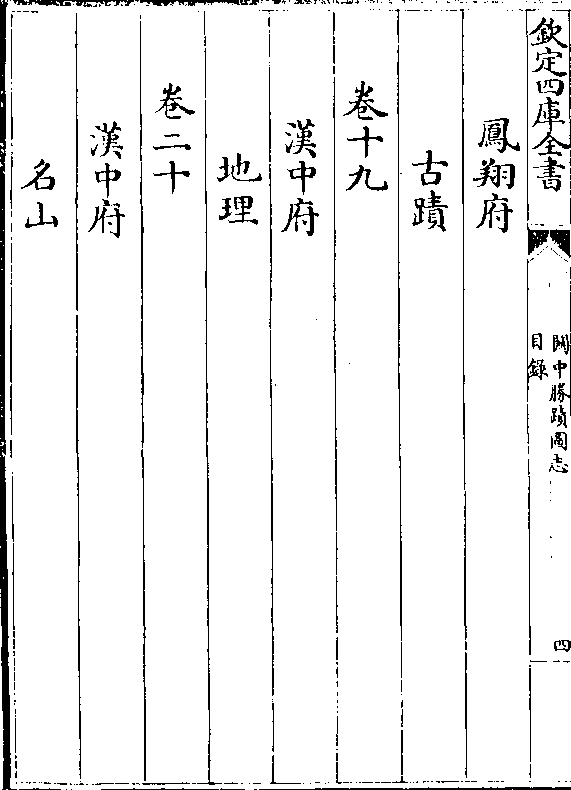 欽定四庫全書
關中勝蹟圖志
目錄
四
鳳翔府
古蹟
卷十九
漢中府
地理
卷二十
漢中府
名山